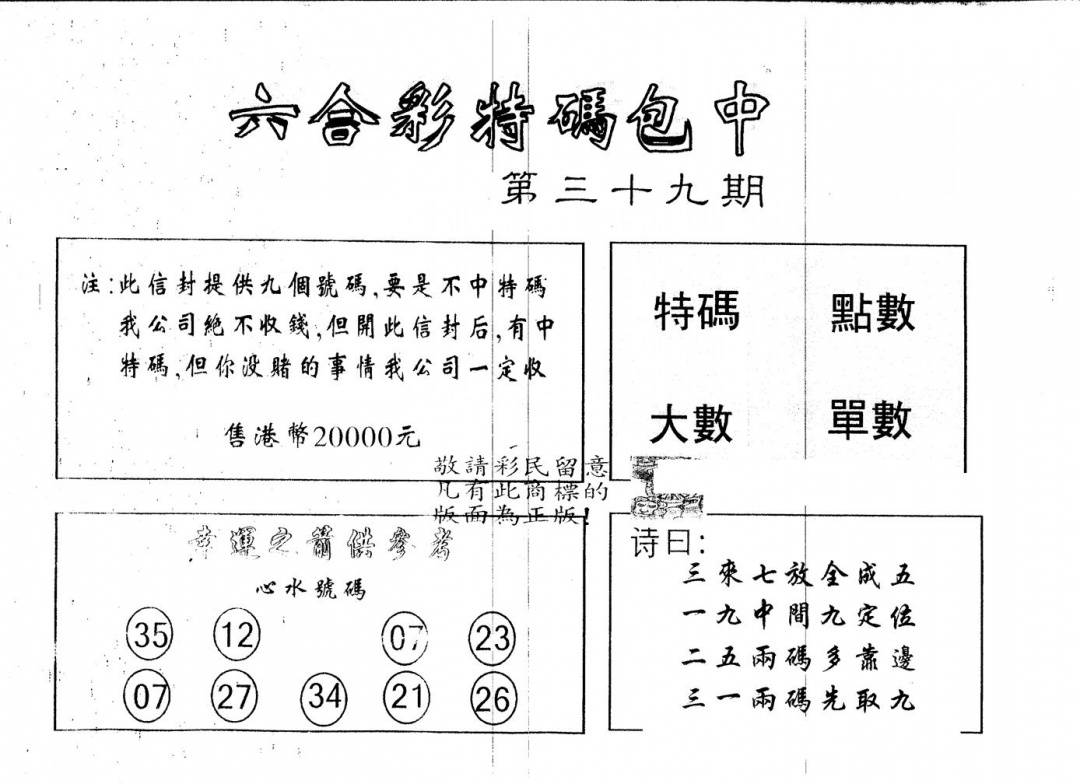 六合彩特碼包中
第三十九期
注:此信封提供九個號碼,要是不中特碼
我公司絶不收錢,但開此信封后,有中
特碼,但你没賭的事情我公司一定收
售港幣20000元
特碼 點數
大數 單數
敬請彩民留意
凡有此商標的
版面為正版!
幸運之箭供參考
心水號碼
35 12 07 23
07 27 34 21 26
诗曰:
三來七放全成五
一九中間九定位
二五兩碼多靠邊
三一兩碼先取九